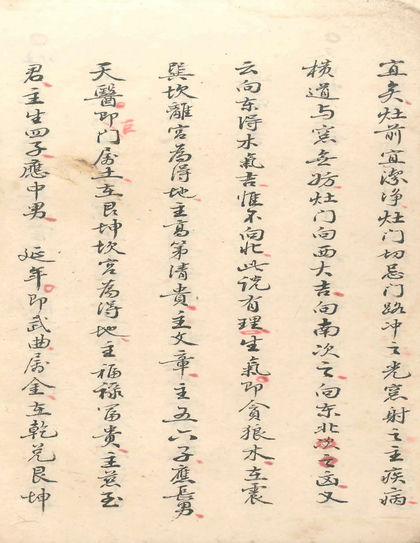 宜灸灶前宜潔净灶门切忌门路冲之光窓射之主疾病
横道与窓無妨灶门向西大吉向南次之向东北次之凶又
云向东得水氣吉惟不向北此说有理生氣即貪狼木在震
巽坎離宫為得地主髙第清貴主文章主五六子應長男
天醫即巨门属土在艮坤坎宫為得地主福禄富贵主慈玉
君主生四子應中男 延年即武曲属金在乾兑艮坤